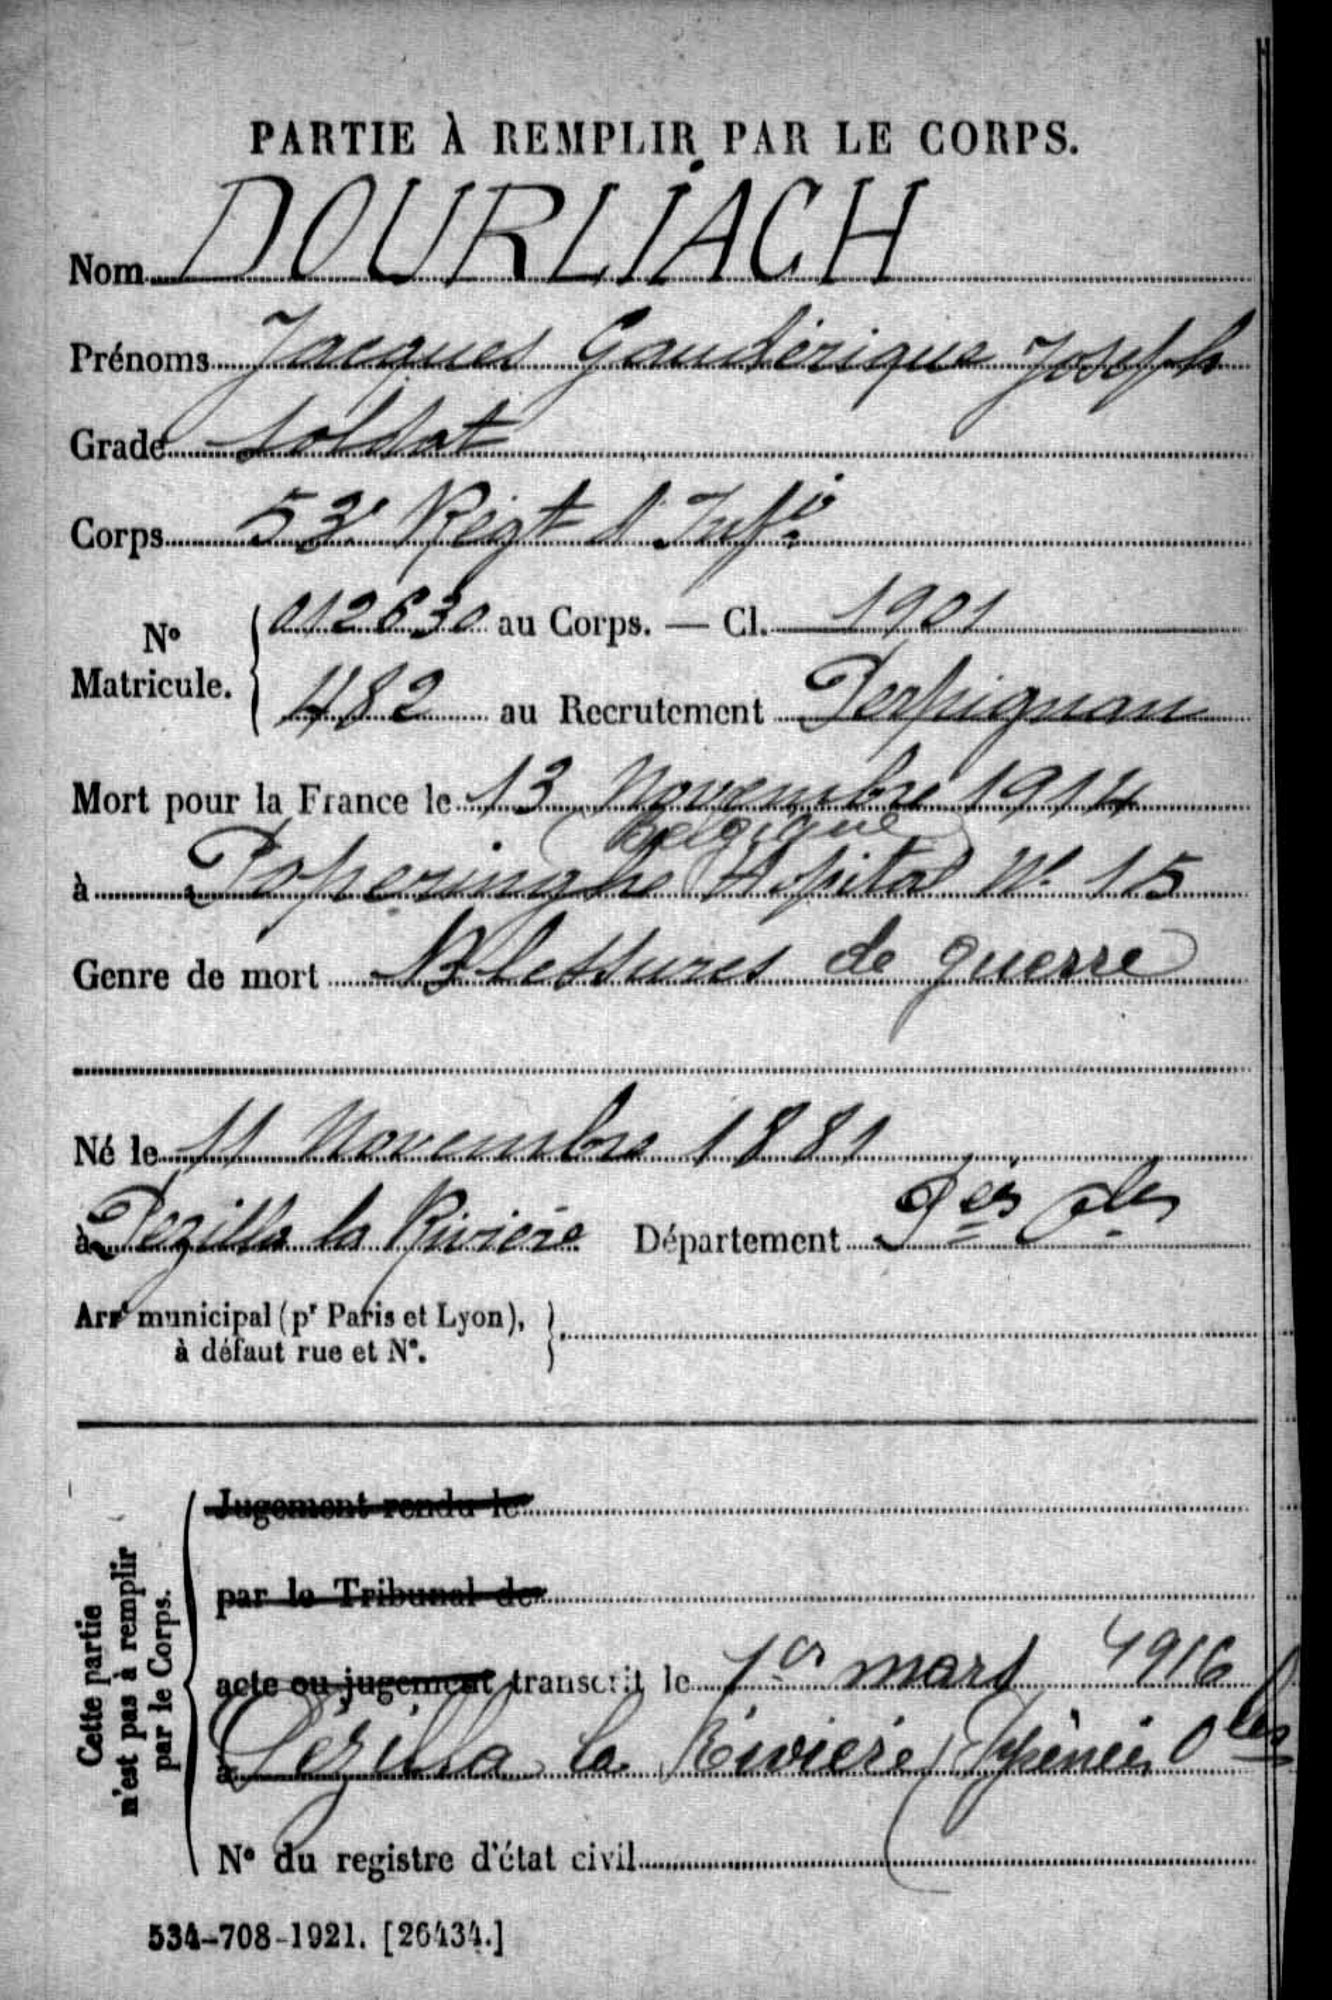 PARTIE À REMPLIR PAR LE CORPS.
Nom DOURLIACH
Prénoms Jacques Gaudérique Joseph
Grade Soldat
Corps 53e Régt d'Infie
N° Matricule. 012630 au Corps. — Cl. 1901
482 au Recrutement Perpignan
Mort pour la France le 13 Novembre 1914
(Belgique)
à Poperinghe Hôpital N° 15
Genre de mort Blessures de guerre
Né le 11 Novembre 1881
à Pezilla la Rivière Département Pées Oles
Arrt municipal (pr Paris et Lyon),
à défaut rue et N°.
Cette partie
n'est pas à remplir
par le Corps.
Jugement rendu le
par le Tribunal de
acte ou jugement transcrit le 1er mars 1916
à Pézilla la Rivière (Pyrénées Oles
N° du registre d'état civil
534-708-1921. [26434.]